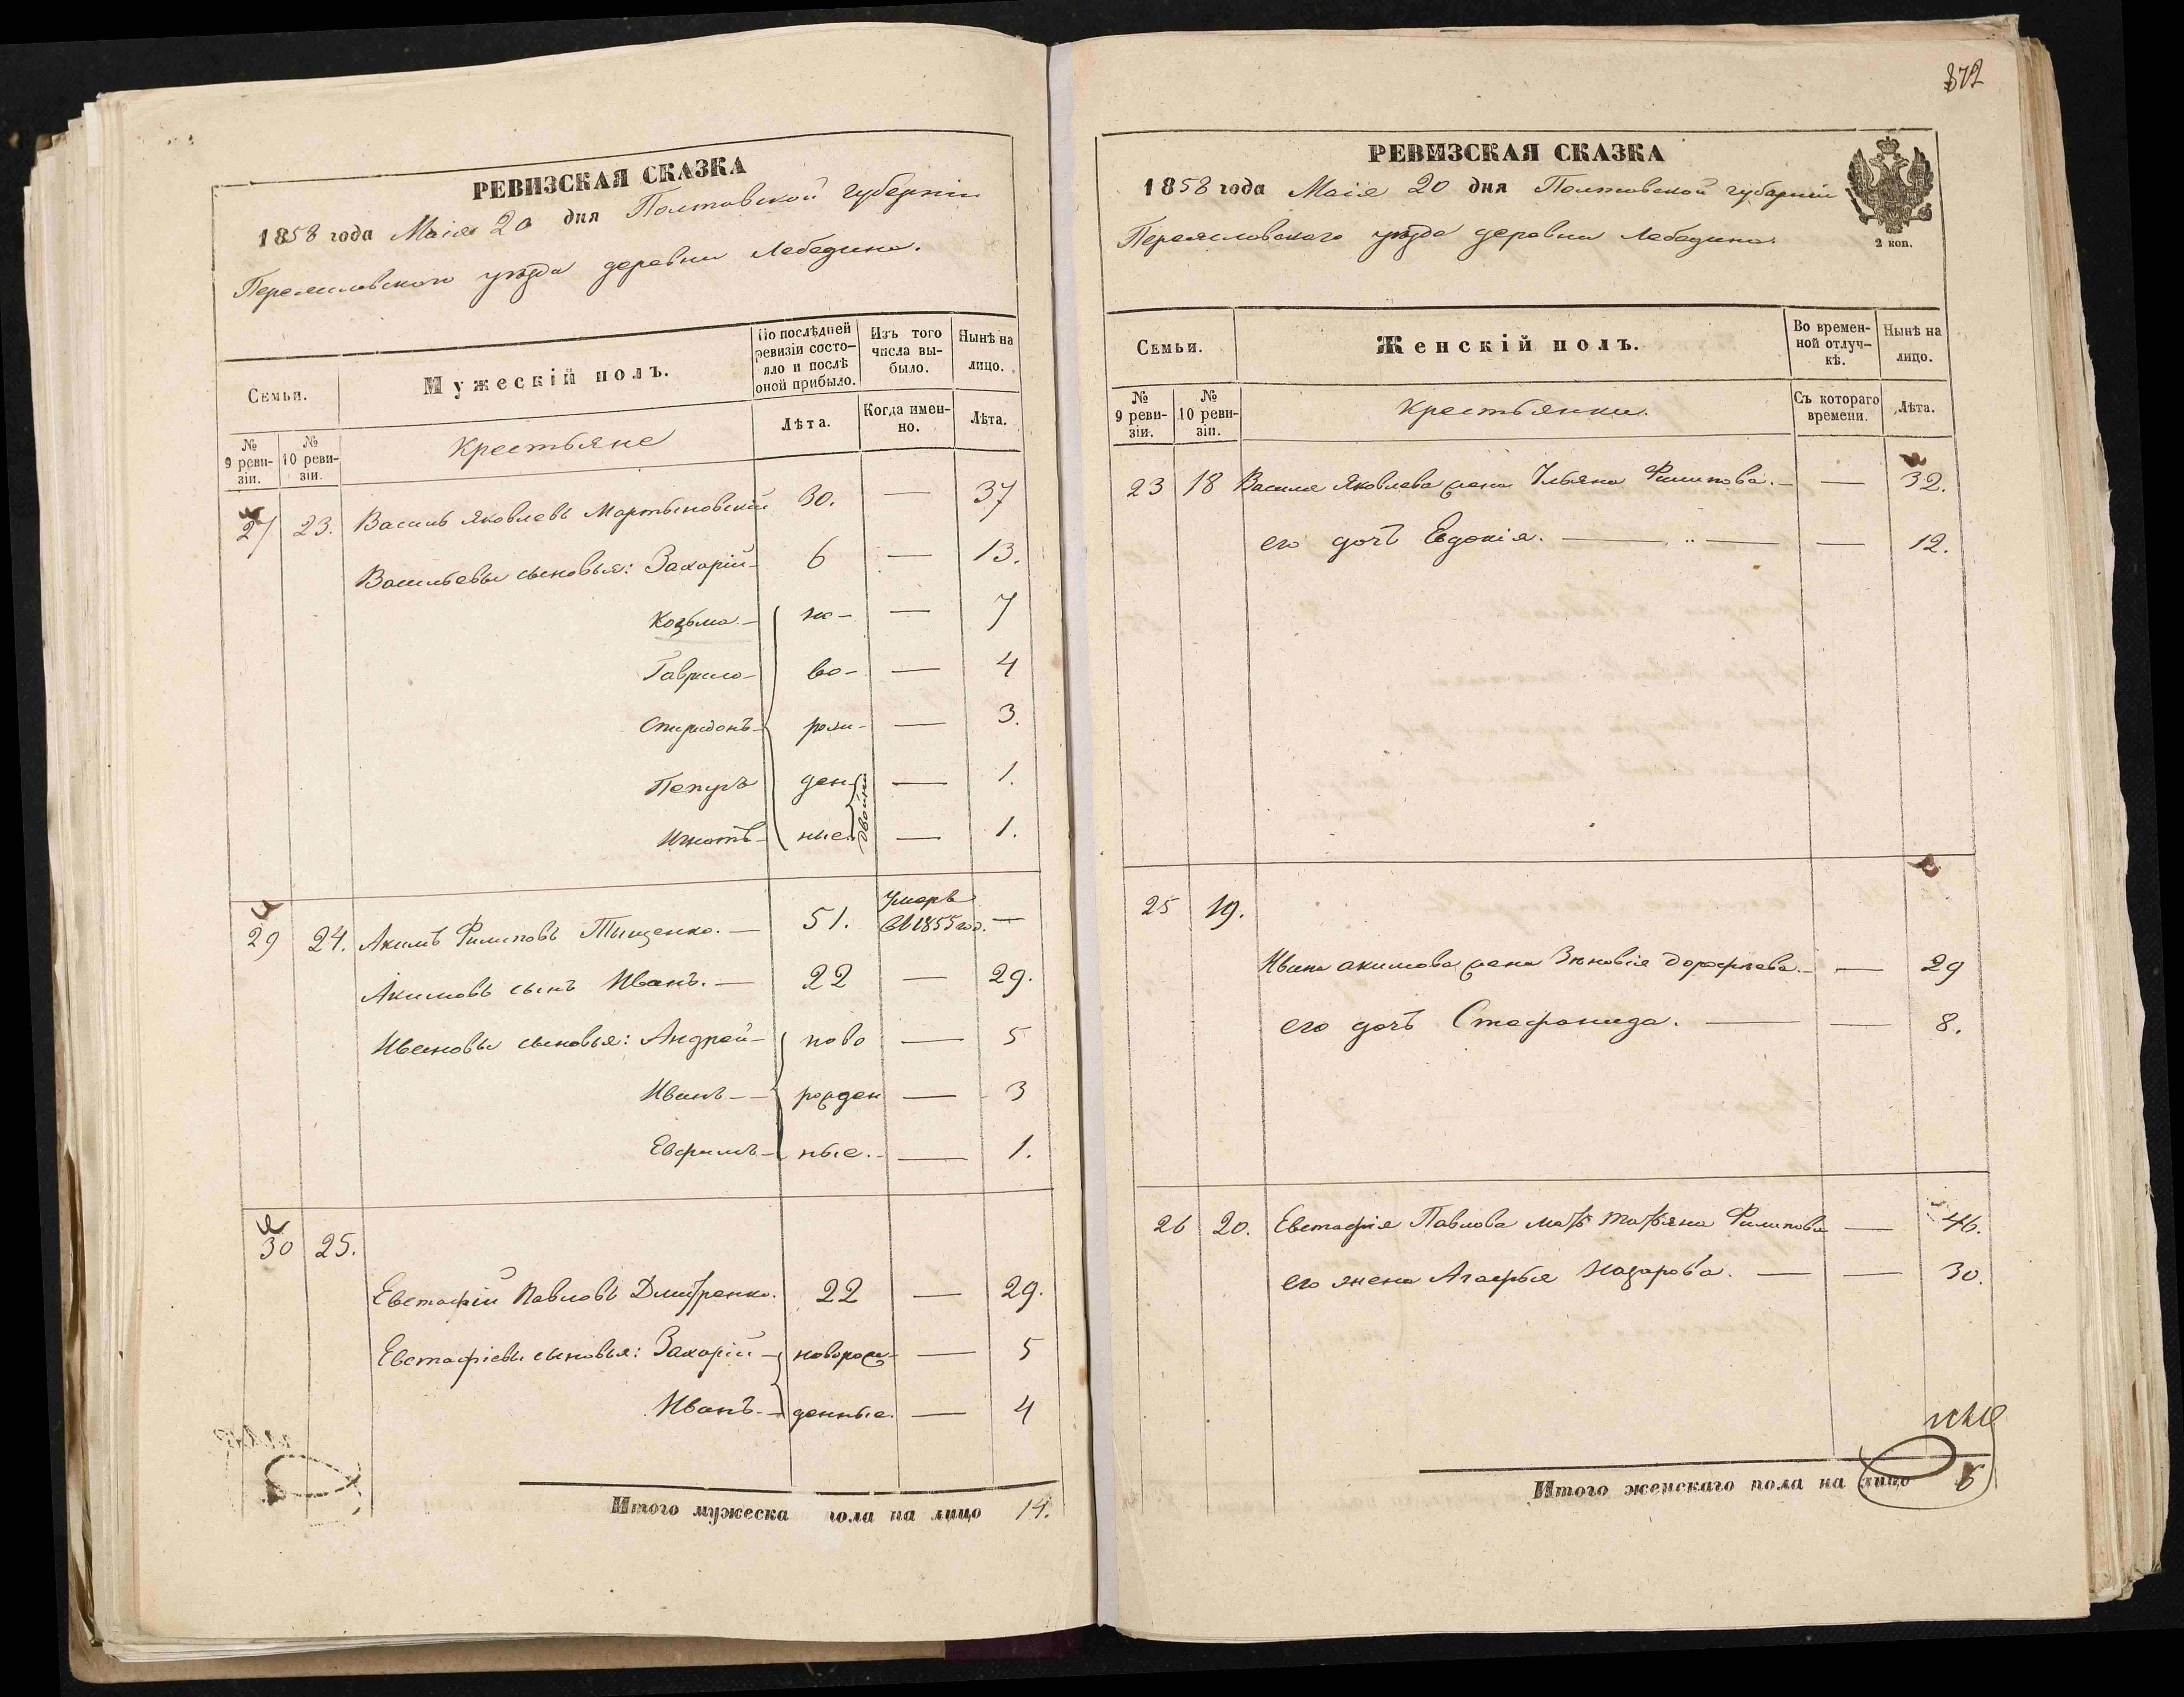 РЕВИЗСКАЯ СКАЗКА
1858 года Маія 20 дня Полтавской губерніи
Переяславского уѣзда деревни Лебедина.
Семьи.
Мужескій полъ.
По послѣдней ревизіи состо-
яло и послѣ оной прибыло.
Изъ того числа вы-
было.
Нынѣ на лицо.
№ 9 реви-
зіи.
№ 10 реви-
зіи.
Крестьяне
Лѣта.
Когда имен-
но.
Лѣта.
27 23. Василь Яковлевъ Мартыновскій 30. — 37
Васильевы сыновья: Захарій 6 — 13.
Козьма — но- — 7
Гаврило — во- — 4
Спиридонъ — рож- — 3.
Петръ ден- — 1.
Игнатъ — ные двойни — 1.
29 24. Акимъ Филиповъ Тыщенко. — 51. Умеръ в 1855 год. —
Акимовъ сынъ Иванъ. — 22 — 29.
Ивановы сыновья: Андрей — ново — 5
Иванъ — рожден — 3
Евфимъ — ные. — 1.
30 25.
Евстафій Павловъ Дмитренко. 22 — 29.
Евстафіевы сыновья: Захарій — новорож- — 5
Иванъ. — денные. — 4
Итого мужеска пола на лицо 14.
372
РЕВИЗСКАЯ СКАЗКА
1858 года Маія 20 дня Полтавской губерніи
Переясловского уѣзда деревни Лебедина.
2 коп.
Семьи.
Женскій полъ.
Во времен-
ной отлуч-
кѣ.
Нынѣ на лицо.
№ 9 реви-
зіи.
№ 10 реви-
зіи.
Крестьянки.
Съ котораго времени.
Лѣта.
23 18 Василя Яковлева жена Ульяна Филипова. — — 32.
его дочь Евдокія. — „ — — 12.
25 19.
Ивана акимова жена Зѣновія дорофѣева. — — 29
его дочь Стефанида. — — 8.
26 20. Евстафія Павлова мать татьяна Филипова — 46.
его жена Агафья Назарова. — — 30.
Итого женскаго пола на лицо 6